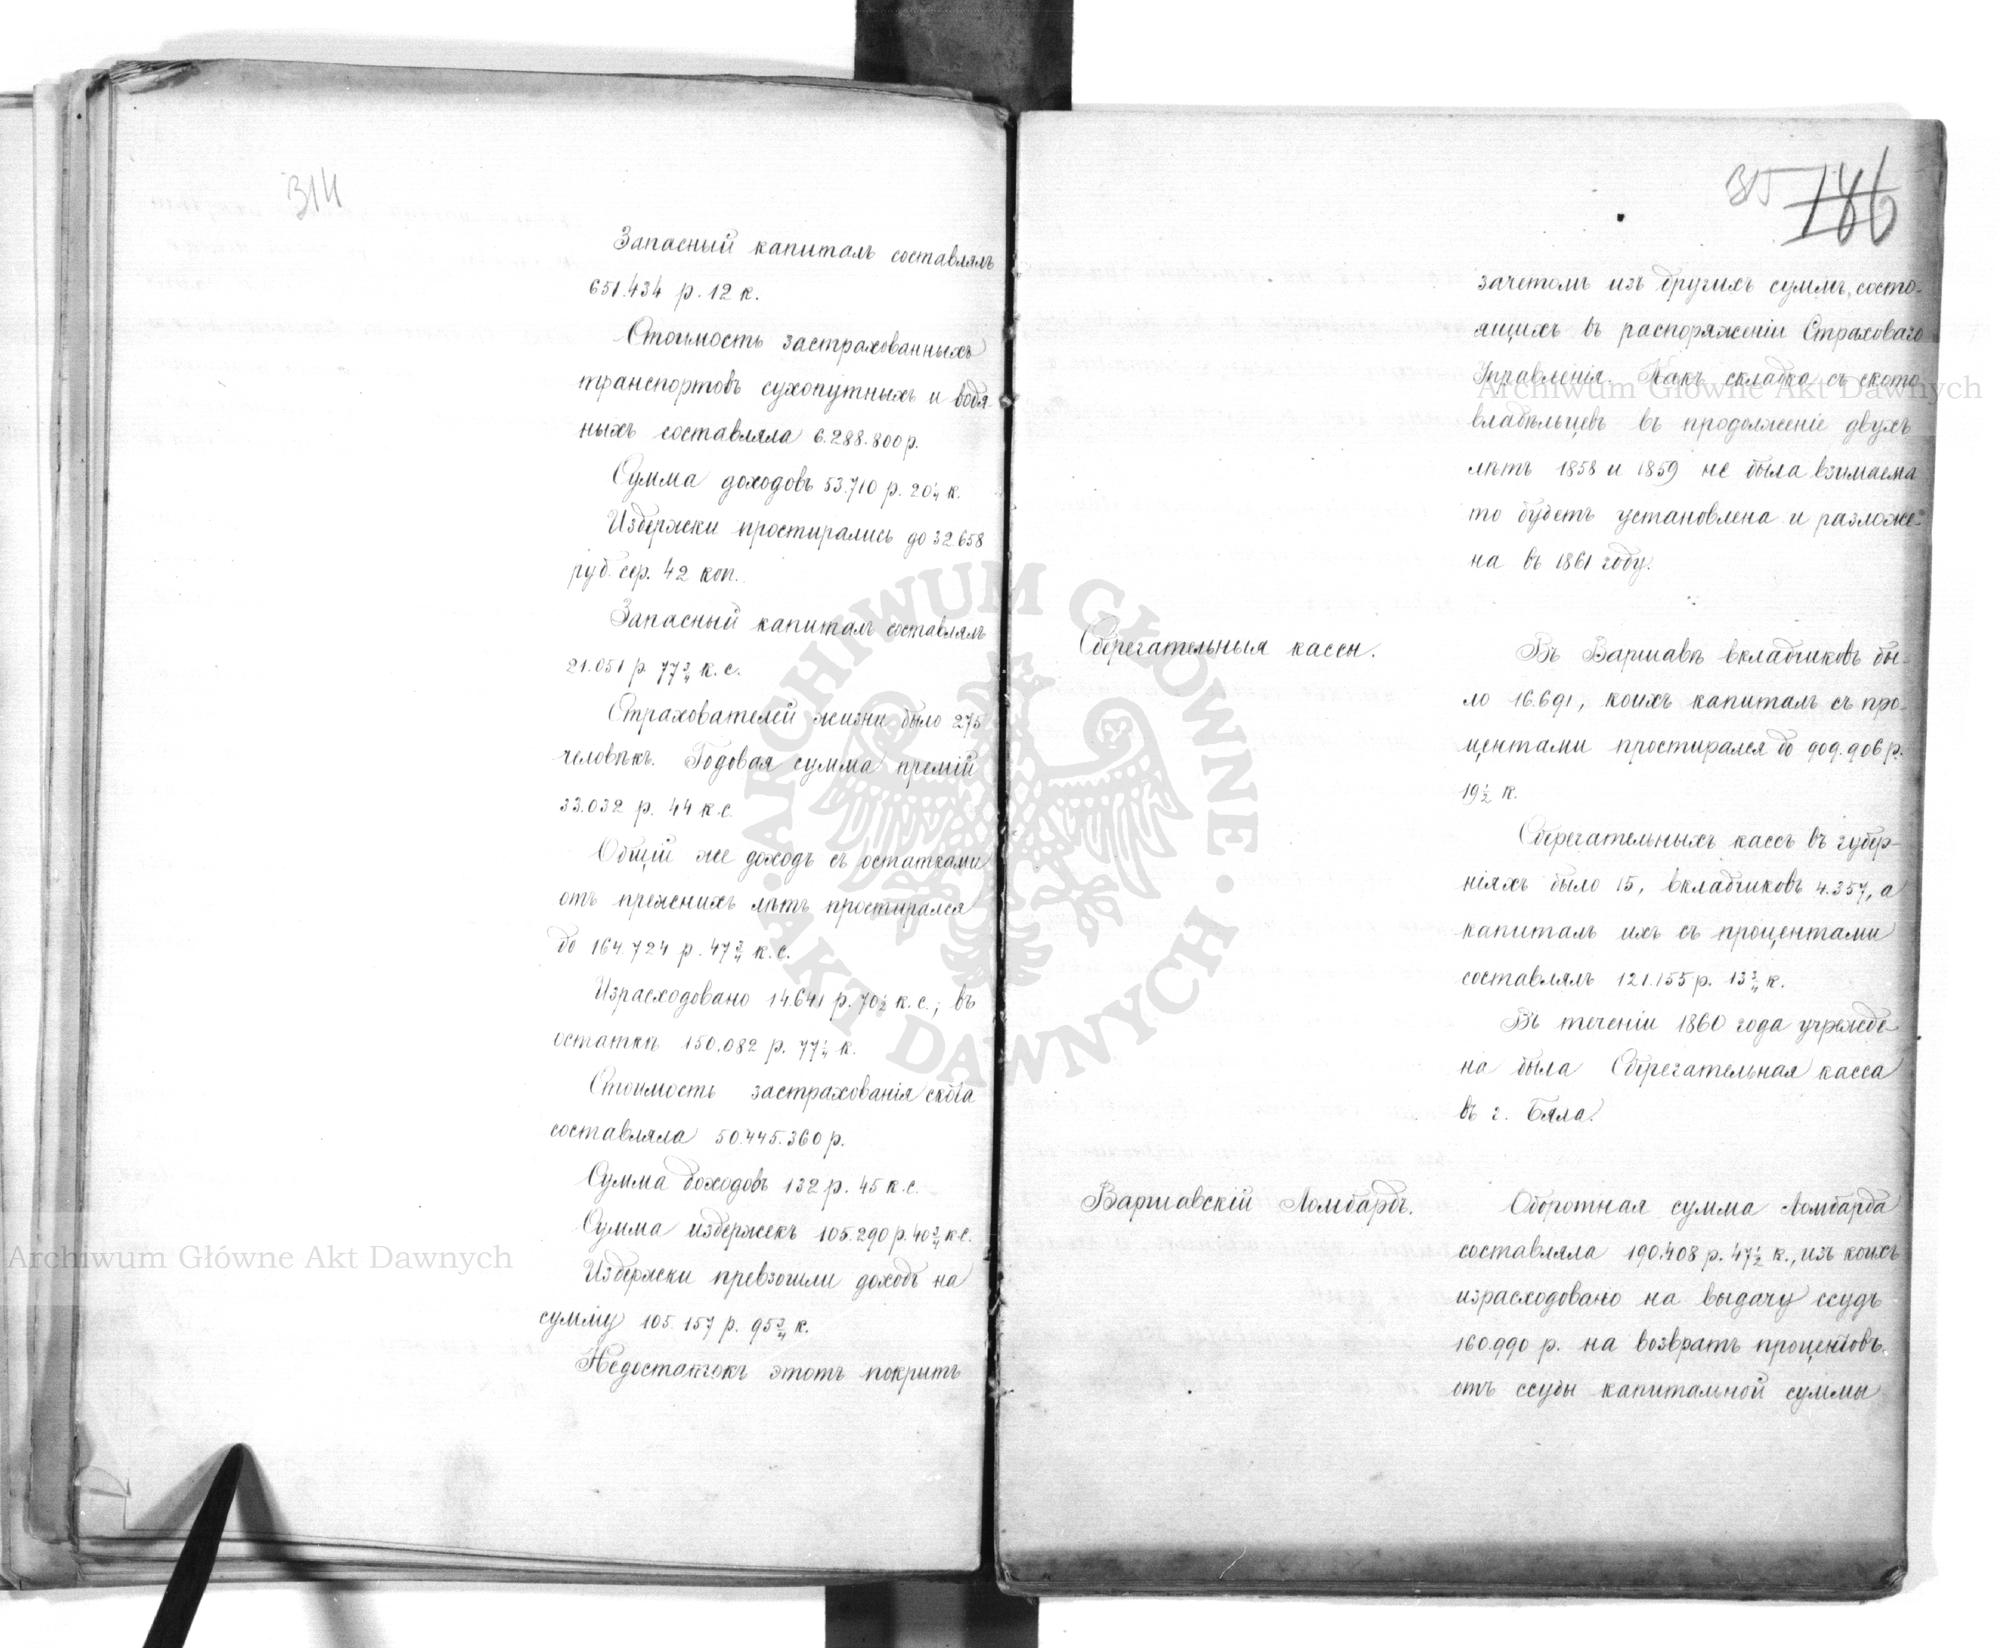 314
Запасный капиталъ составлялъ
651.434 р. 12 к.
Стоимость застрахованныхъ
транспортовъ сухопутныхъ и водя-
ныхъ составляла 6.288.800 р.
Сумма доходовъ 53.710 р. 20¼ к.
Издержки простирались до 32658
руб. сер. 42 коп.
Запасный капиталъ составлялъ
21.051 р. 77¾ к. с.
Страхователей жизни было 275
человѣкъ. Годовая сумма премій
33.032 р. 44 к. с.
Общій же доходъ съ остатками
отъ прежнихъ лѣтъ простирался
до 164.724 р. 47¾ к. с.
Израсходовано 14.641 р. 70½ к. с.; въ
остаткѣ 150.082 р. 77¼ к.
Стоимость застрахованія скота
составляла 50.445.360 р.
Сумма доходовъ 132 р. 45 к. с.
Сумма издержекъ 105.290 р. 40¾ к. с.
Издержки превзошли доходъ на
сумму 105.157 р. 95¾ к.
Недостатокъ этотъ покрытъ
315 186
зачетомъ изъ другихъ суммъ, состо-
ящихъ въ распоряженіи Страховаго
Управленія. Какъ складка съ ското-
владѣльцевъ въ продолженіе двухъ
лѣтъ 1858 и 1859 не была взимаема
то будетъ установлена и разложе-
на въ 1861 году.
Сберегательныя кассы.
Въ Варшавѣ вкладчиковъ бы-
ло 16.691, коихъ капиталъ съ про-
центами простирался до 909.906 р.
19½ к.
Сберегательныхъ кассъ въ губер-
ніяхъ было 15, вкладчиковъ 4.357, а
капиталъ ихъ съ процентами
составлялъ 121.155 р. 13¾ к.
Въ теченіи 1860 года учрежде-
на была Сберегательная касса
въ г. Бяла.
Варшавскій Ломбардъ.
Оборотная сумма Ломбарда
составляла 190.408 р. 47½ к., изъ коихъ
израсходовано на выдачу ссудъ
160.990 р. на возвратъ процентовъ
отъ ссуды капитальной суммы
Archiwum Główne Akt Dawnych
Archiwum Główne Akt Dawnych
ARCHIWUM GŁÓWNE
AKT DAWNYCH